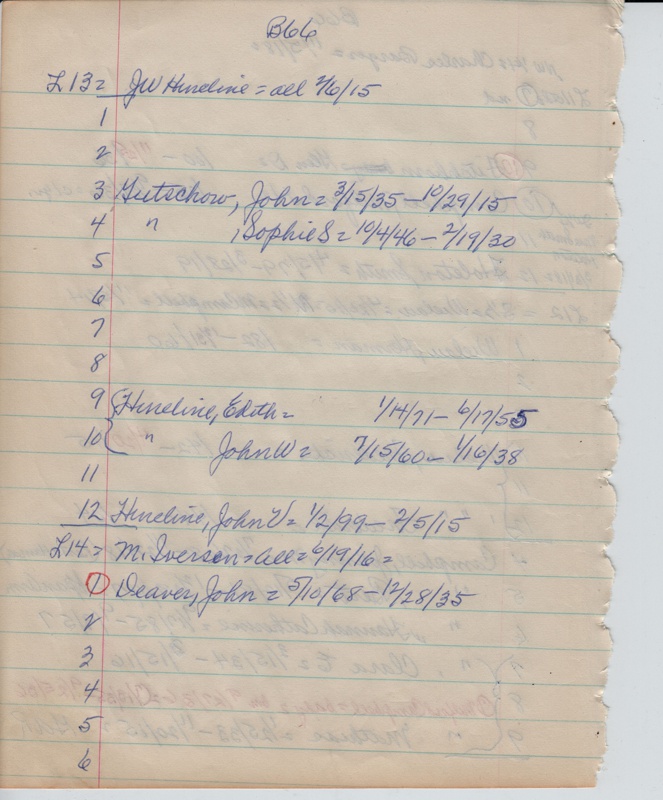 B66
L13= JW Hineline = all 2/6/15
1
2
3 Gutschow, John = 3/15/35 - 10/29/15
4 " , Sophie S = 10/4/46 - 2/19/30
5
6
7
8
9 { Hineline, Edith = 1/14/71 - 6/17/55
10 { " John W = 7/15/60 - 1/16/38
11
12 Hineline, John V = 1/2/99 - 2/5/15
L14 = M. Iverson = all = 6/19/16 =
1 Deaver, John = 5/10/68 - 12/28/35
2
3
4
5
6